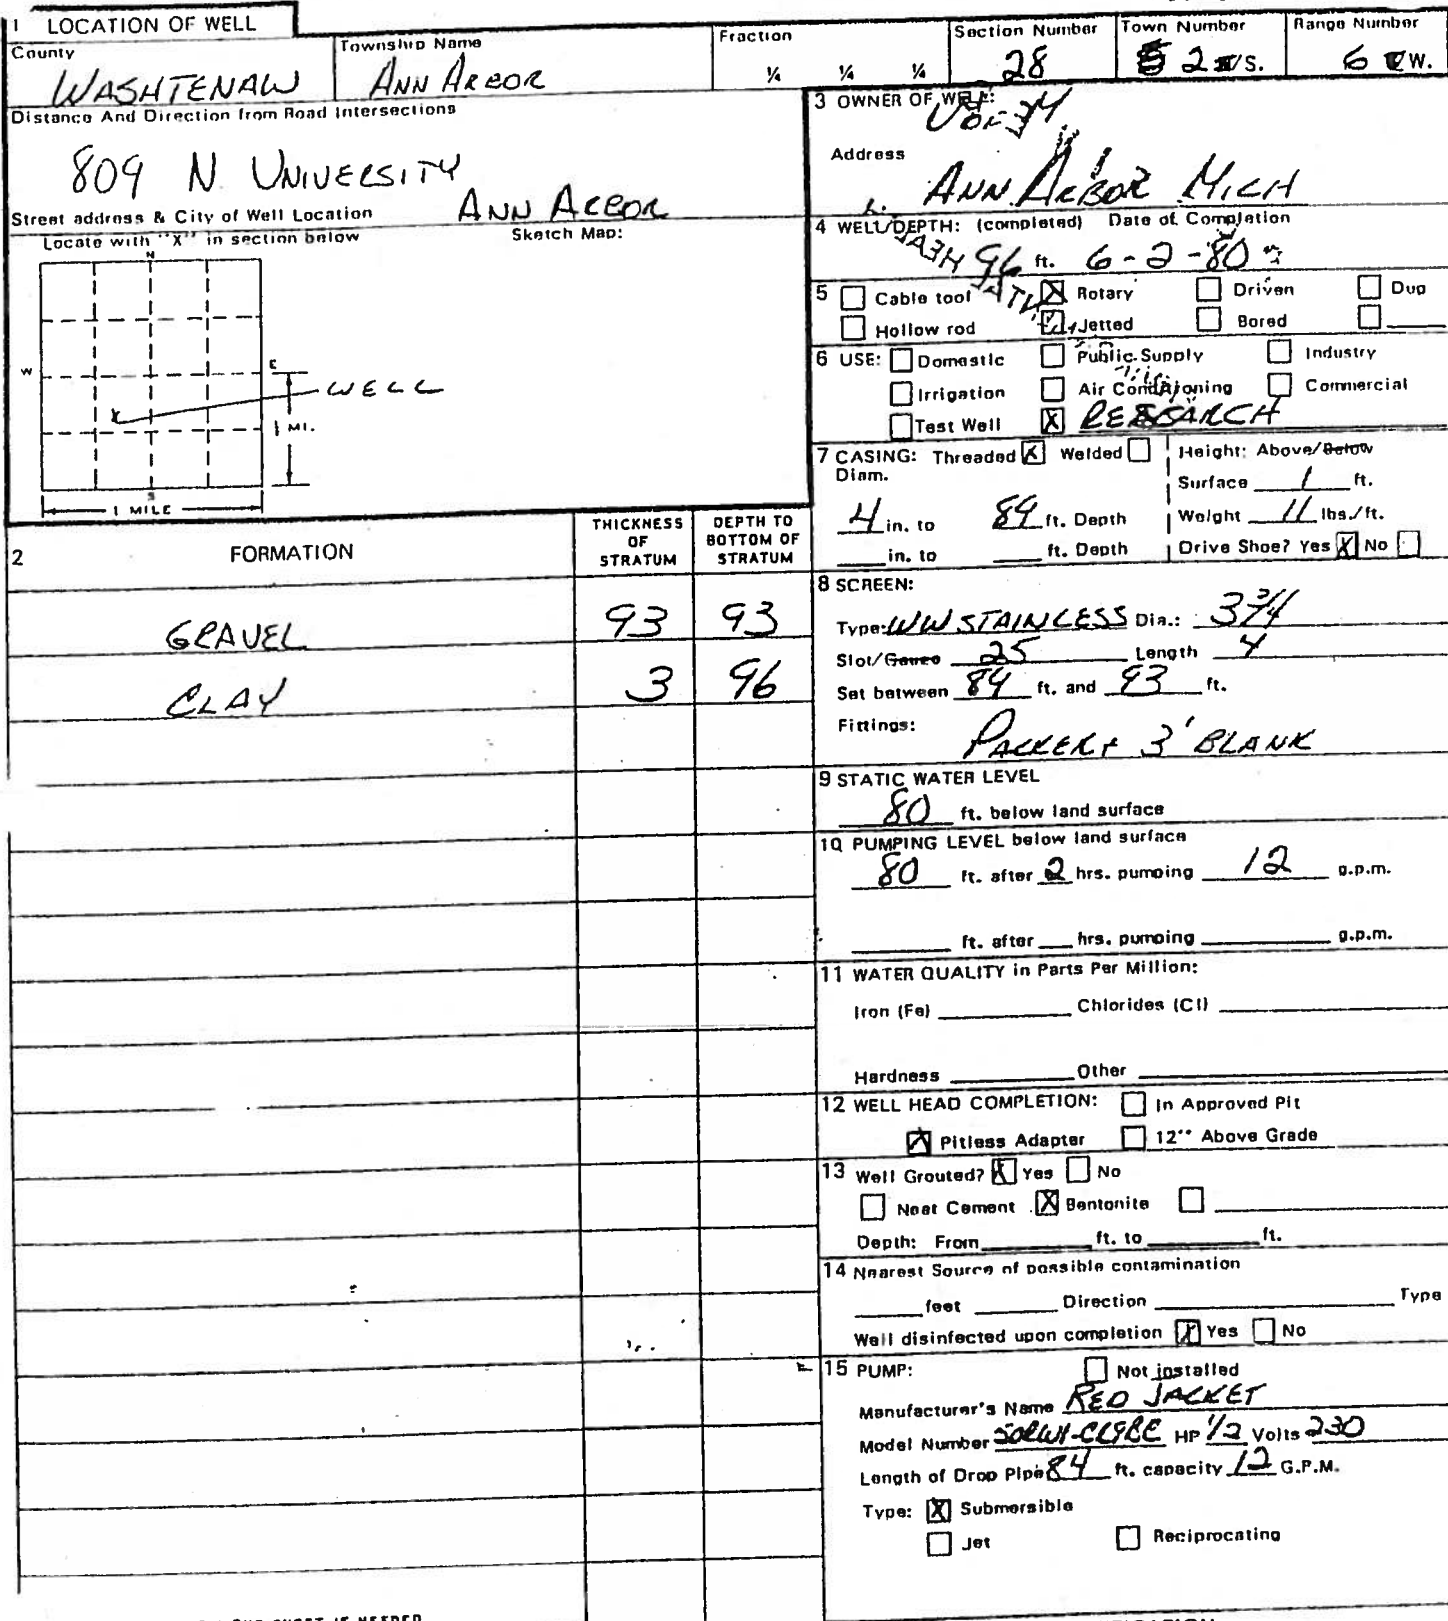 1 LOCATION OF WELL
County
WASHTENAW
Township Name
ANN ARBOR
Fraction
¼ ¼ ¼
Section Number
28
Town Number
2 /S.
Range Number
6 W.
Distance And Direction from Road Intersections
809 N UNIVERSITY
Street address & City of Well Location ANN ARBOR
Locate with "X" in section below
Sketch Map:
N
W
E
S
WELL
1 MI.
1 MILE
2 FORMATION
THICKNESS OF STRATUM
DEPTH TO BOTTOM OF STRATUM
GRAVEL 93 93
CLAY 3 96
3 OWNER OF WELL:
U OF M
Address
ANN ARBOR MICH
4 WELL DEPTH: (completed) Date of Completion
96 ft. 6-2-80
5 Cable tool X Rotary Driven Dug
Hollow rod Jetted Bored
6 USE: Domestic Public Supply Industry
Irrigation Air Conditioning Commercial
Test Well X RESEARCH
7 CASING: Threaded X Welded
Diam.
4 in. to 89 ft. Depth
in. to ft. Depth
Height: Above/Below
Surface 1 ft.
Weight 11 lbs./ft.
Drive Shoe? Yes X No
8 SCREEN:
Type: WW STAINLESS Dia.: 3 3/4
Slot/Gauze 25 Length 4
Set between 89 ft. and 93 ft.
Fittings:
PACKER + 3' BLANK
9 STATIC WATER LEVEL
80 ft. below land surface
10 PUMPING LEVEL below land surface
80 ft. after 2 hrs. pumping 12 g.p.m.
ft. after hrs. pumping g.p.m.
11 WATER QUALITY in Parts Per Million:
Iron (Fe) Chlorides (Cl)
Hardness Other
12 WELL HEAD COMPLETION: In Approved Pit
X Pitless Adapter 12" Above Grade
13 Well Grouted? X Yes No
Neat Cement X Bentonite
Depth: From ft. to ft.
14 Nearest Source of possible contamination
feet Direction Type
Well disinfected upon completion X Yes No
15 PUMP: Not installed
Manufacturer's Name RED JACKET
Model Number HP 1/2 Volts 230
Length of Drop Pipe 84 ft. capacity 12 G.P.M.
Type: X Submersible
Jet Reciprocating
SHEET IF NEEDED